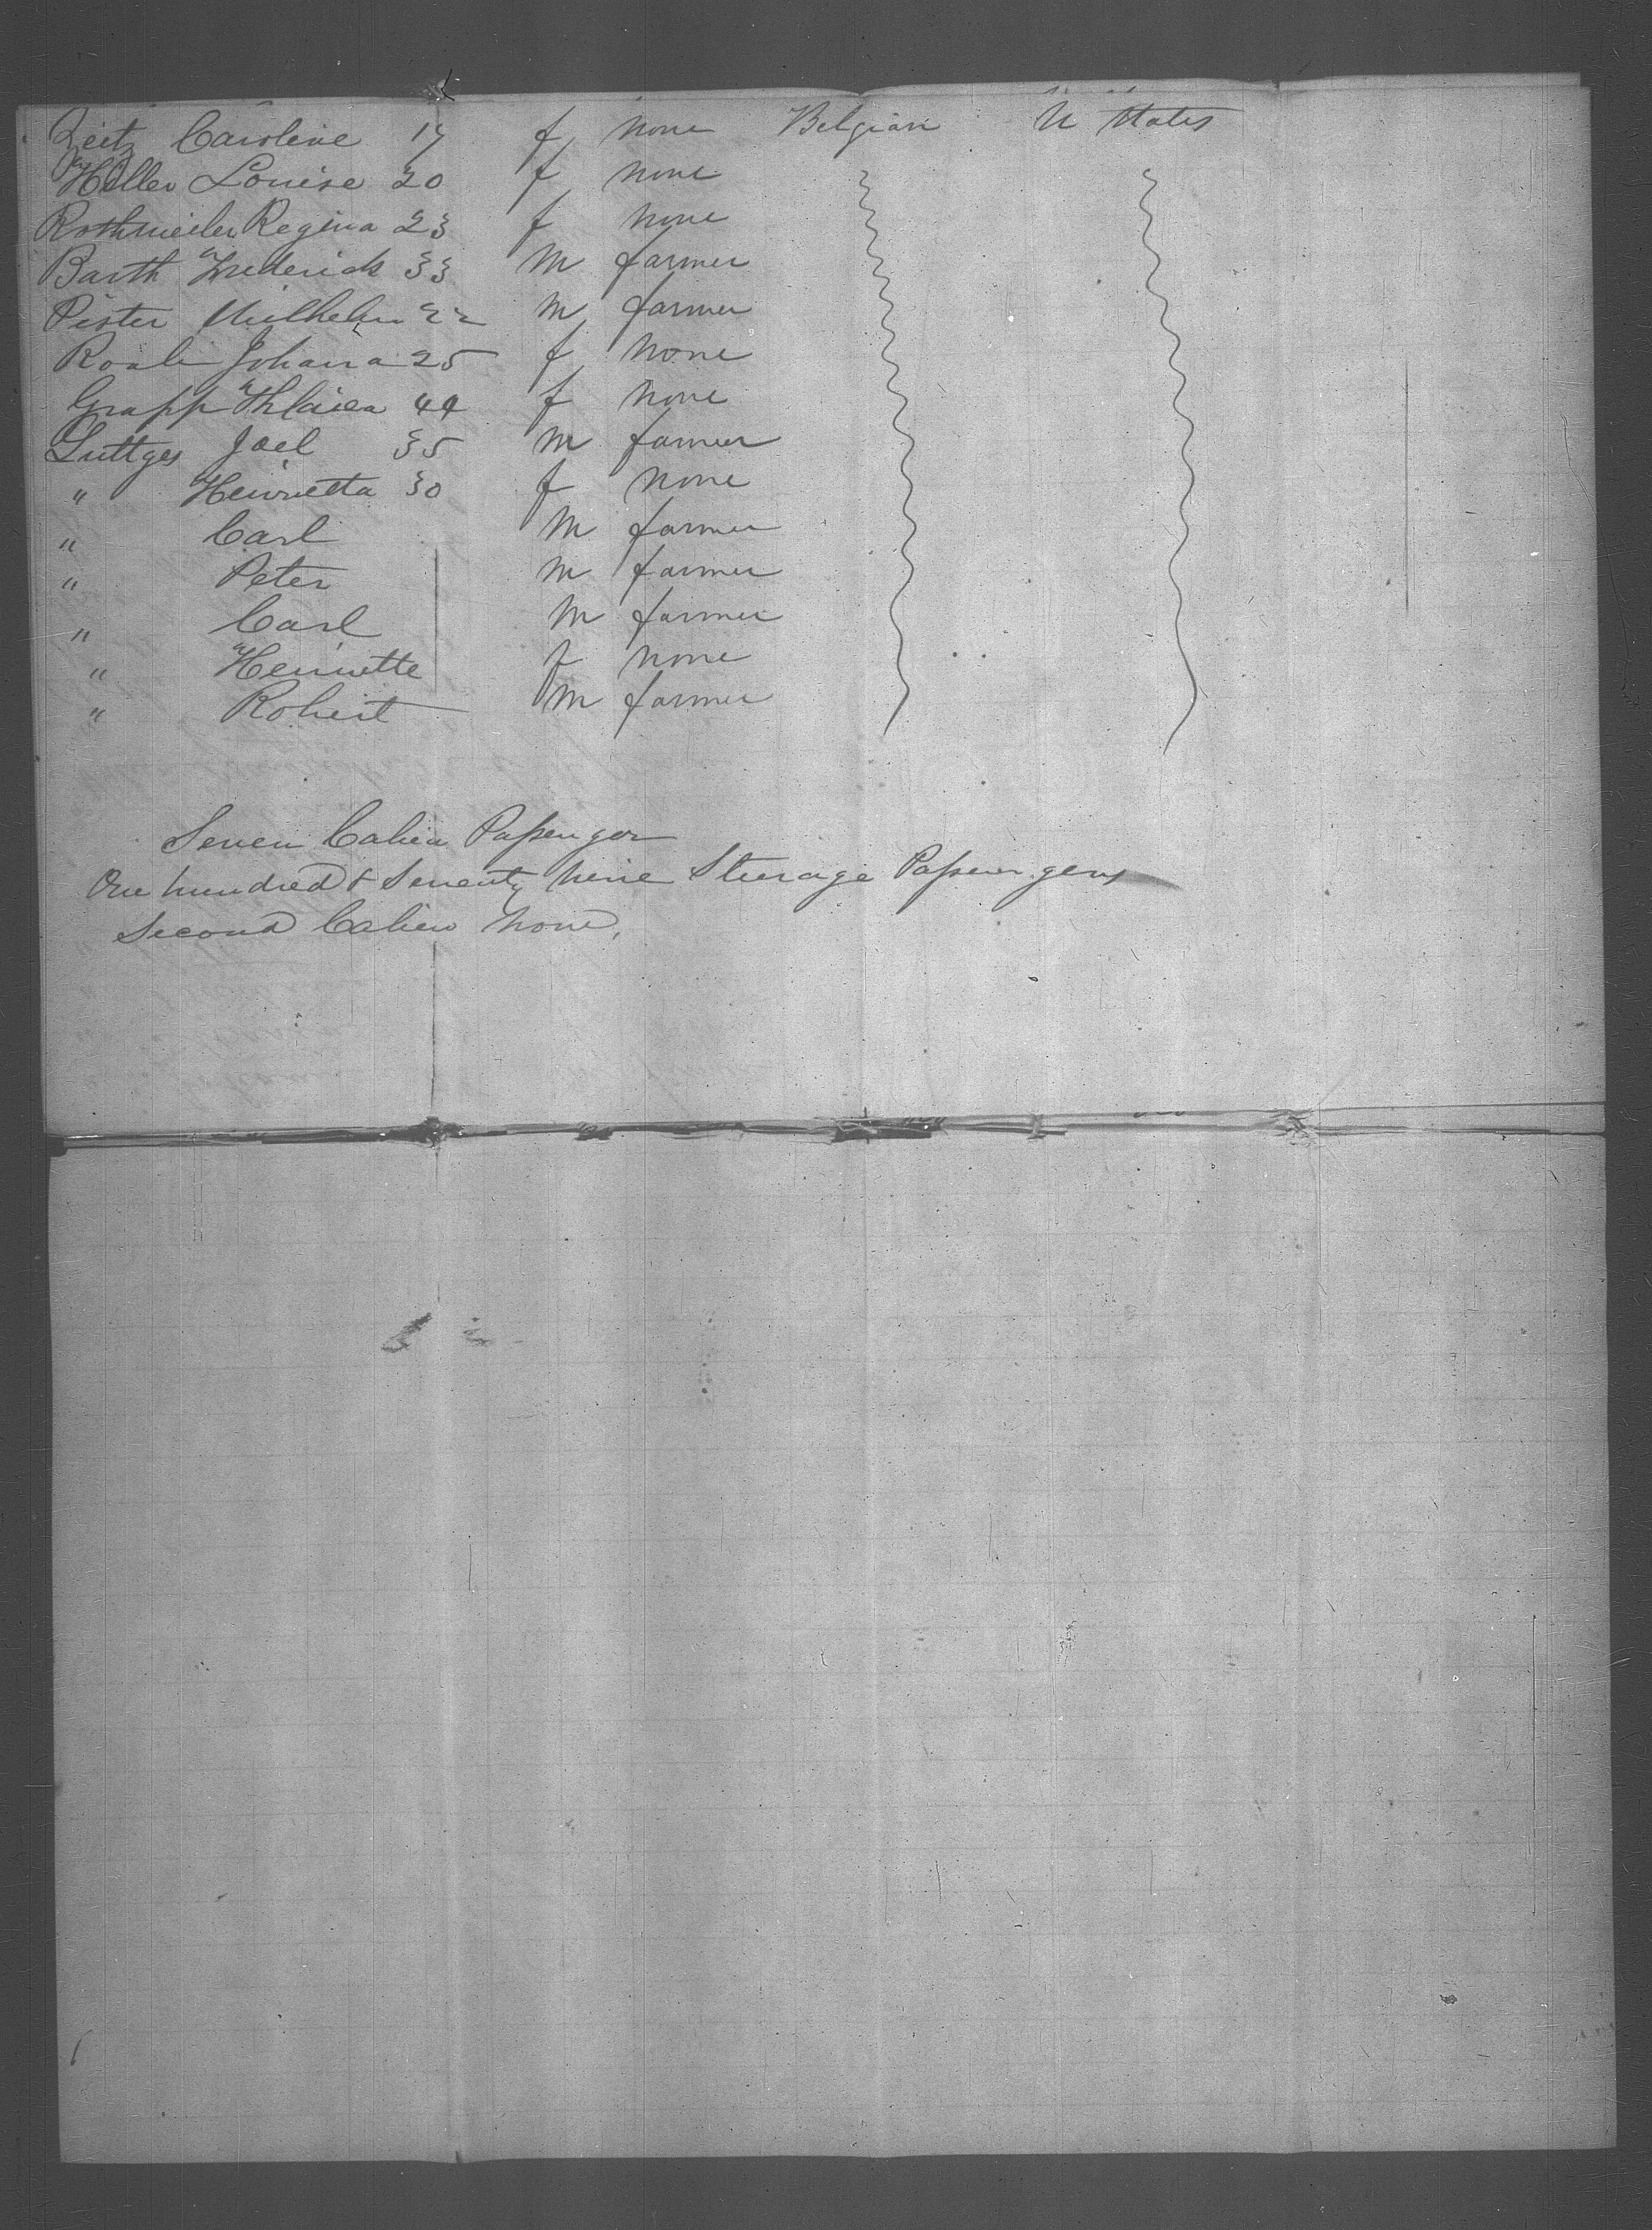 Zeitz Caroline 17 f none Belgian U States
Heller Louise 20 f none
Rothweiler Regina 23 f none
Barth Frederick 33 m farmer
Pister Wilhelm 22 m farmer
Johana 25 f none
Grapp 44 f none
Luttges Joel 35 m farmer
" Henrietta 30 f none
" Carl m farmer
" Peter m farmer
" Carl m farmer
" Henriette f none
" Robert m farmer
Seven Cabin Passenger
One hundred & Seventy nine Steerage Passengers
Second Cabin none.